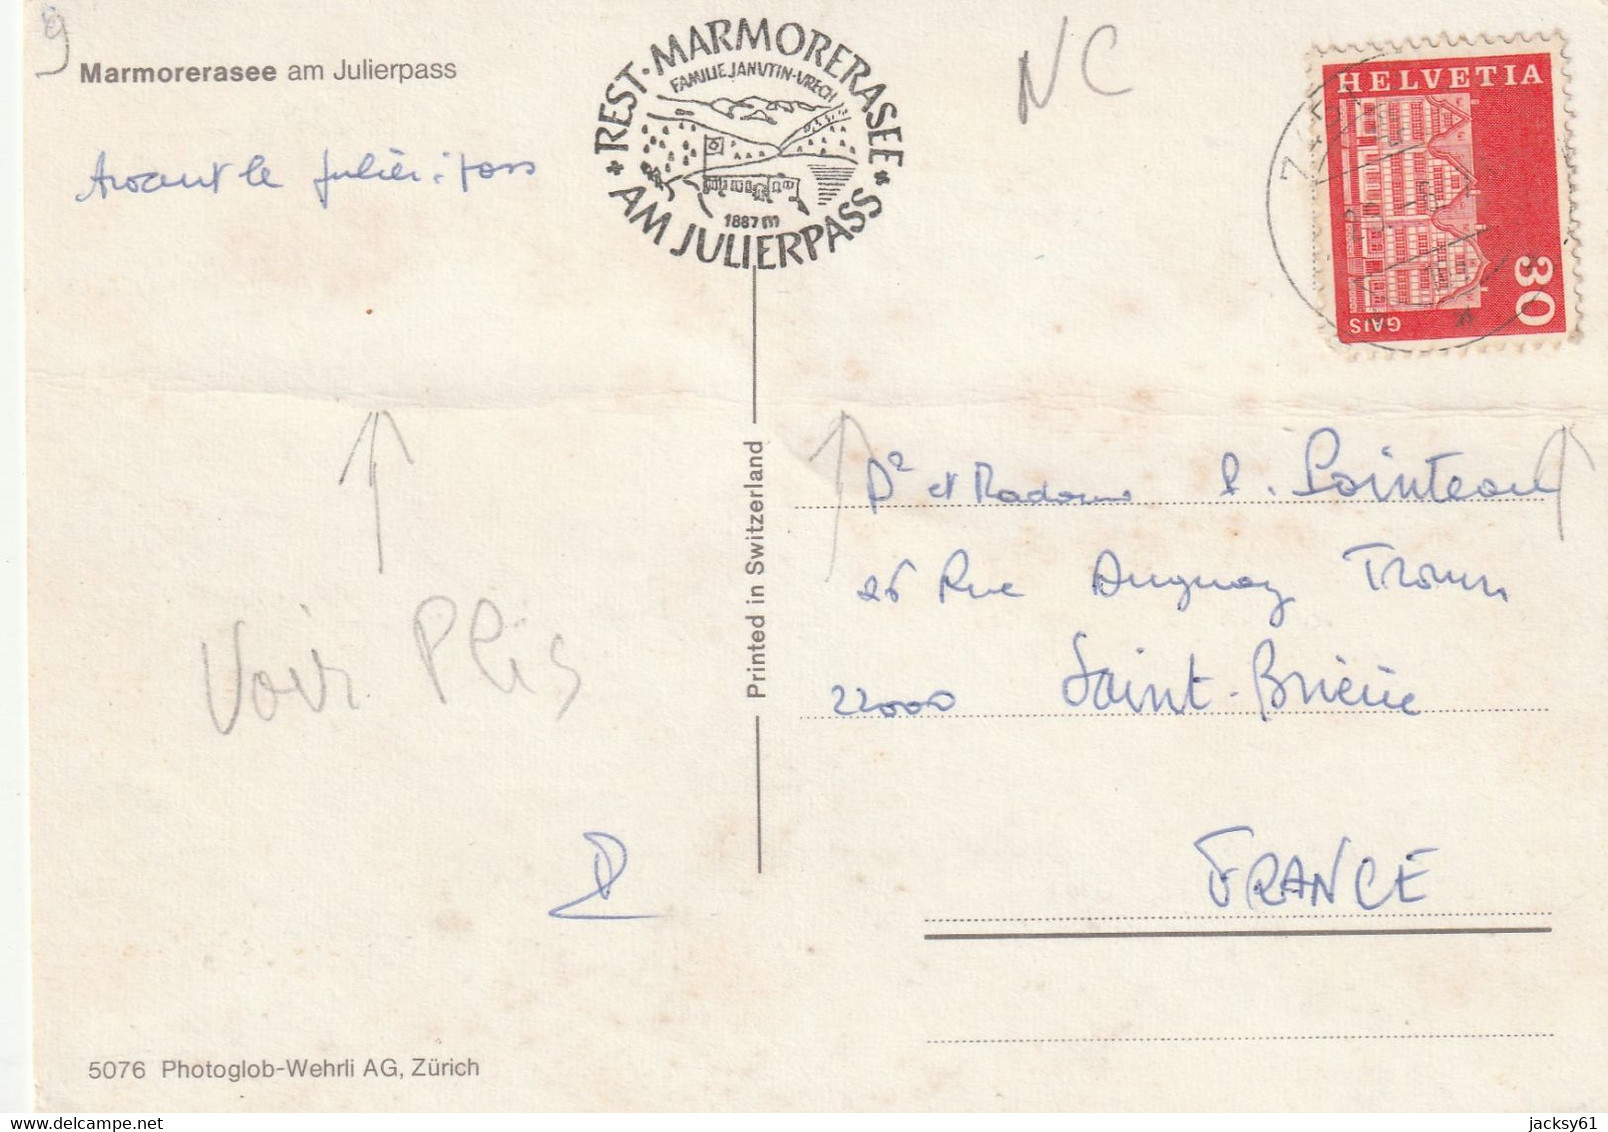 9
Marmorerasee am Julierpass
* REST. MARMORERASEE *
FAMILIE JANUTIN-VRECH
1887 m
AM JULIERPASS
NC
HELVETIA
30
GAIS
Avant le Julier-pass
Voir Plis
Printed in Switzerland
Dr et Madame P. Pointeau
26 Rue Duguay Trouin
22000 Saint-Brieuc
FRANCE
5076 Photoglob-Wehrli AG, Zürich
jacksy61
delcampe.net